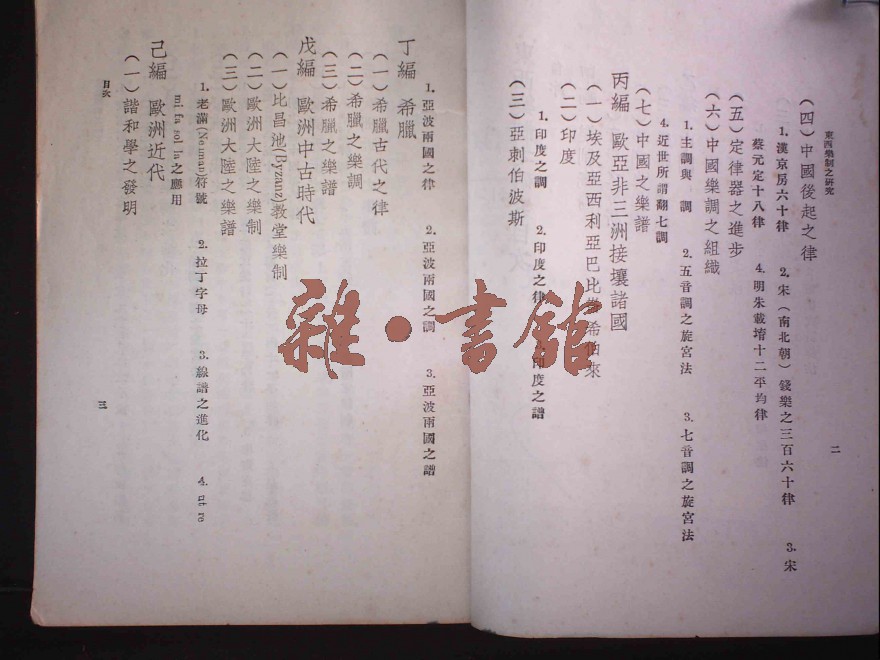 東西樂制之研究
二
（四）中國後起之律
1. 漢京房六十律 2. 宋（南北朝）錢樂之三百六十律 3. 宋
蔡元定十八律 4. 明朱載堉十二平均律
（五）定律器之進步
（六）中國樂調之組織
1. 主調與 調 2. 五音調之旋宮法 3. 七音調之旋宮法
4. 近世所謂翻七調
（七）中國之樂譜
丙編 歐亞非三洲接壤諸國
（一）埃及亞西利亞巴比 希伯來
（二）印度
1. 印度之調 2. 印度之律 印度之譜
（三）亞剌伯波斯
1. 亞波兩國之律 2. 亞波兩國之調 3. 亞波兩國之譜
丁編 希臘
（一）希臘古代之律
（二）希臘之樂調
（三）希臘之樂譜
戊編 歐洲中古時代
（一）比昌池(Byzanz)教堂樂制
（二）歐洲大陸之樂制
（三）歐洲大陸之樂譜
1. 老滿(Neuman)符號 2. 拉丁字母 3. 線譜之進化 4. ut re
mi fa sol la之應用
己編 歐洲近代
（一）諧和學之發明
目次
三
雜·書館